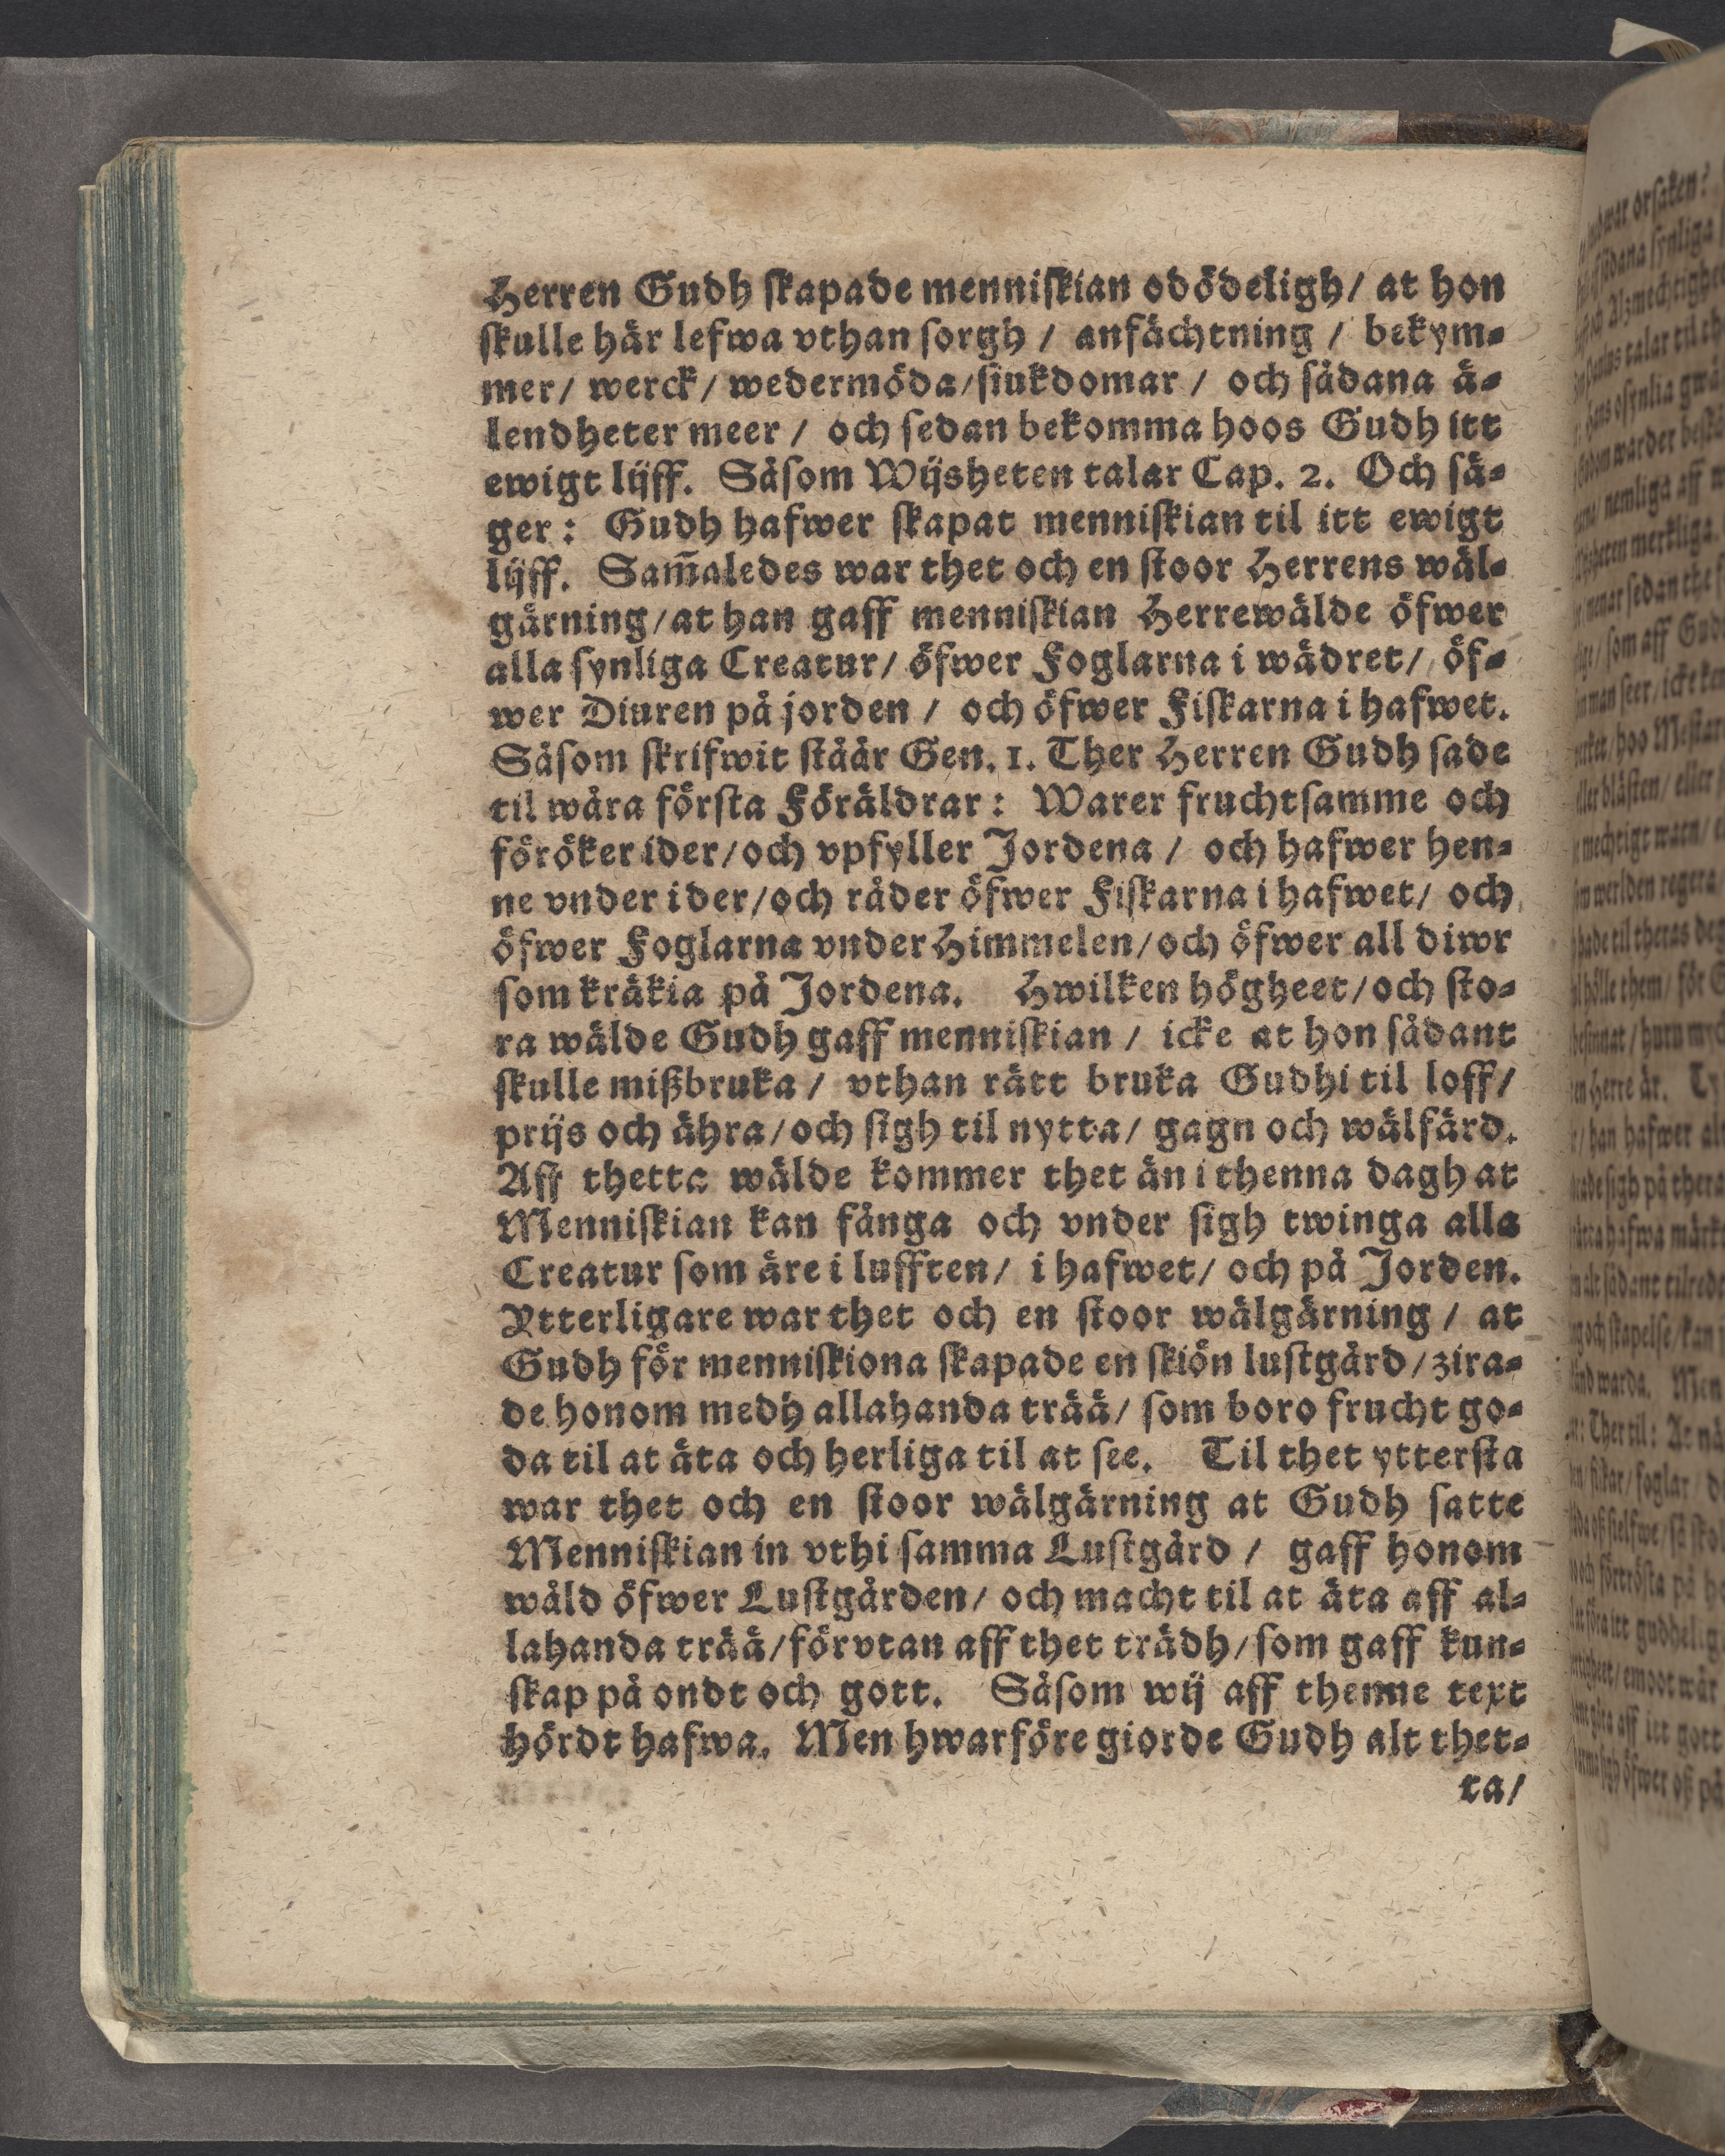 Herren Gudh skapade menniskian odödeligh/ at hon
skulle här lefwa vthan sorgh / anfächtning / bekym-
mer/ werck/ wedermöda/siukdomar / och sådana ä-
lendheter meer / och sedan bekomma hoos Gudh itt
ewigt lijff. Såsom Wijsheten talar Cap. 2. Och sä-
ger: Gudh hafwer skapat menniskian til itt ewigt
lijff. Sam̃aledes war thet och en stoor Herrens wäl-
gärning/at han gaff menniskian Herrewälde öfwer
alla synliga Creatur/ öfwer Foglarna i wädret/ öf-
wer Diuren på jorden / och öfwer Fiskarna i hafwet.
Såsom skrifwit ståår Gen. 1. Ther Herren Gudh sade
til wåra första Föräldrar: Warer fruchtsamme och
föröker ider/och vpfyller Jordena / och hafwer hen-
ne vnder ider/och råder öfwer Fiskarna i hafwet/ och
öfwer Foglarna vnder Himmelen/och öfwer all diwr
som kräkia på Jordena. Hwilken högheet/och sto-
ra wälde Gudh gaff menniskian / icke at hon sådant
skulle mißbruka / vthan rätt bruka Gudhi til loff/
prijs och ähra/och sigh til nytta/ gagn och wälfärd.
Aff thetta wälde kommer thet än i thenna dagh at
Menniskian kan fånga och vnder sigh twinga alla
Creatur som äre i lufften/ i hafwet/ och på Jorden.
Ytterligare war thet och en stoor wälgärning / at
Gudh för menniskiona skapade en skiön lustgård/zira-
de honom medh allahanda trää/ som boro frucht go-
da til at äta och herliga til at see. Til thet yttersta
war thet och en stoor wälgärning at Gudh satte
Menniskian in vthi samma Lustgård / gaff honom
wåld öfwer Lustgården/ och macht til at äta aff al-
lahanda trää/förvtan aff thet trädh/som gaff kun-
skap på ondt och gott. Såsom wij aff thenne text
hördt hafwa. Men hwarföre giorde Gudh alt thet-
ta/